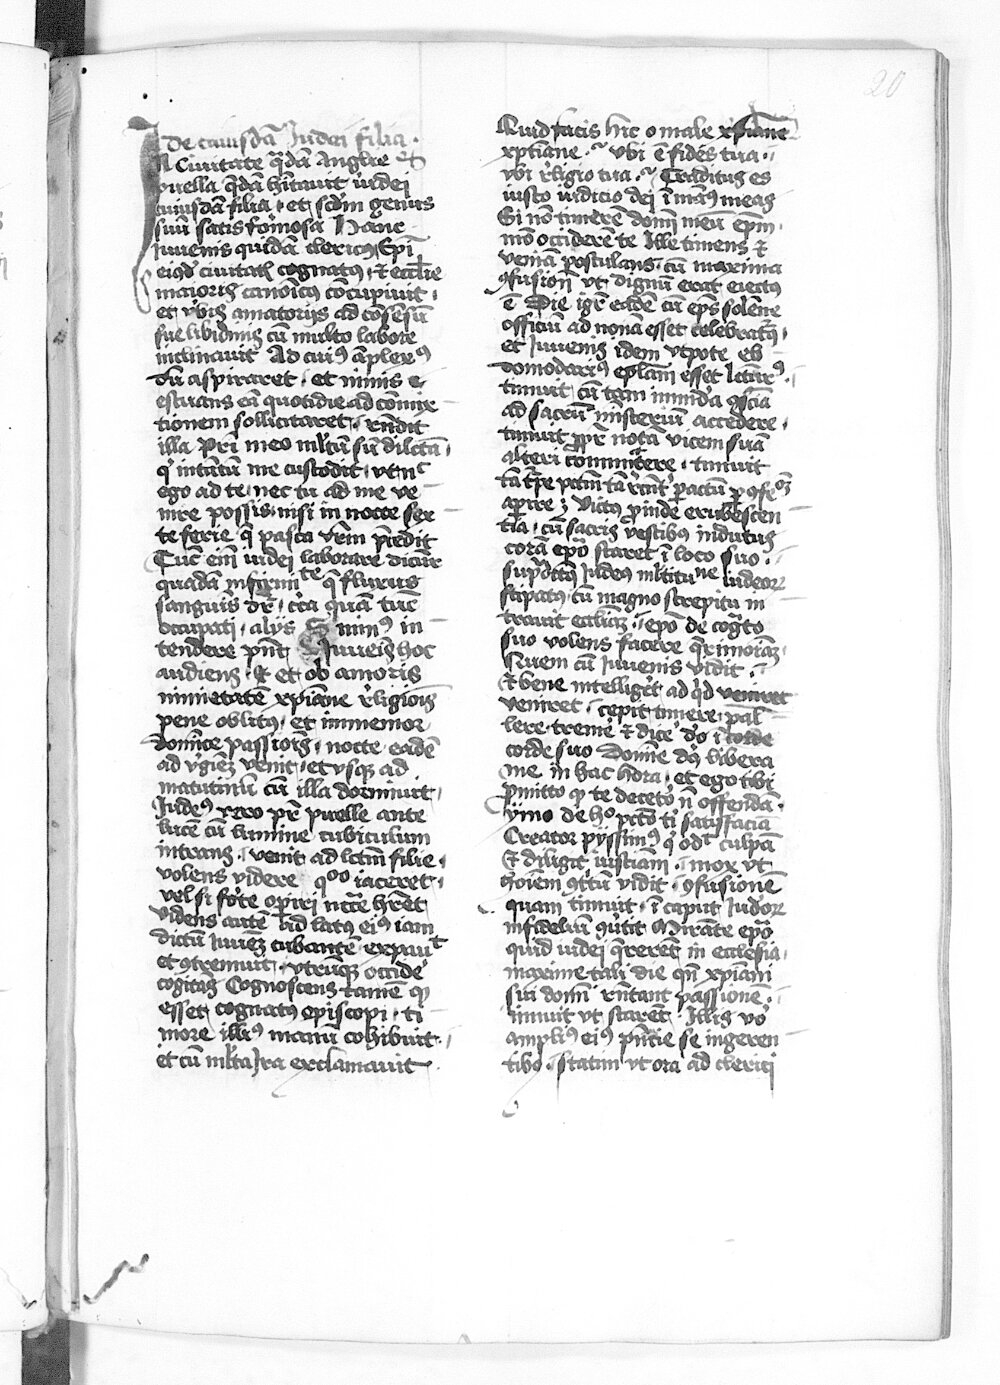 20
De cuiusdā Iudei filia .
In Ciuitate q̄dā Anglie
puella q̄dā hītauit iudei
cuiusdā filia . et scd̄m genus
suū satis formosa Hanc
Iuuenis quidā clericus Ep̄i
eiusdē ciuitatis cognatus . et eccl̄ie
maioris canoicus concupiuit .
et v̄bis amatorijs ad cōsēsū
sue libidinis cū multo labore
inclinauit Ad cuiꝰ āplexꝰ
dū aspiraret . et nimis e
estuans eā quotidie ad cōmix
tionem sollicitaret . rn̄dit
illa Pr̄i meo ml̄tū sū dilecta .
q̄ intātū me custodit . vt nec
ego ad te . nec tu ad me ve
nire possis . nisi in nocte sex
te ferie q̄ pasca vr̄m p̄cedit
Tūc eīm iudei laborare dicūtr
quadā infirmitate q̄ fluxus
sanguīs dr̄ . circa quā tūc
occupati . alijs minꝰ in
tendere pn̄t Iuuenis hoc
audiens . et ob amoris
nimietatē xp̄iane religionis
pene oblitus . et immemor
dominice passionis . nocte eadē
ad v̄ginē venit . et vsqꝫ ad
matutinū cū illa dormiuit .
Iudeꝰ vero pr̄ puelle ante
lucē cū lumine cubiculum
intrans . venit ad lectū filie .
volens videre quo iaceret .
vel si forte operiri nccē hr̄et
videns autē ad latus eiꝰ iam
dictū iuuenē cubantē . expauit
et ꝯtremuit . vtrūqꝫ occidē
cogitās Cognoscens tamē qꝫ
esset cognatus episcopi . ti
more illiꝰ manū cohibuit .
et cū ml̄ta Ira exclamauit
Quid facis hic o male xp̄iane
xp̄tiane . vbi ē fides tua .
vbi religio tua . Traditus es
iusto iudicio dei ī manꝰ meas
Si nō timerē domī meū ep̄m .
mō occiderē te Ille timens et
veniā postulans . cū maxima
ꝯfusioni vt dignū erat eiectus
ē Die igr̄ eadē cū ep̄s solēne
officiū ad nonā esset celebratꝰ .
et Iuuenis idem vtpote eb
domodariꝰ ep̄lam esset lecturꝰ .
timuit cū tam īmunda ꝯsciā
ad sacrū misteriū accedere .
timuit ꝓpr̄ notā vicem suā
alteri committere . timuit
aperire Victus proinde erubescen
tia . cū sacris vestibus indutus
corā ep̄o staret ī loco suo .
supdictꝰ Iudeus multitudine iudeorꝫ
stipatꝰ cū magno strepitu in
trauit eccliaꝫ . ep̄o de cognato
suo volens facere q̄rimoniā
Quem cū Iuuenis vidit .
et bene intelligeret ad qd̄ venret
veniret . cepit timere . pal
lere tremē et dicē do ī corde
corde suo Domine deꝰ libera
me in hac hora . et ego tibi
ꝓmitto qꝫ te decetero nō offendā .
ymo de hoc pctō ti satisfaciā
Creator pijssimꝰ q̄ odit culpā
et diligit iusticiam . mox vt
hominē ꝯtritū vidit . ꝯfusionē
quam timuit . ī caput Iudeorꝫ
infideliū ꝯuertit Mirāte ep̄o
quid iudei q̄rerēt in ecclesia .
maxime tali die qn̄ xp̄iani
sui domini rn̄tant passionē .
innuit vt starēt . Illis vo
ampliꝰ eiꝰ pn̄tie se ingeren
tibꝰ . statim vt ora ad clerici